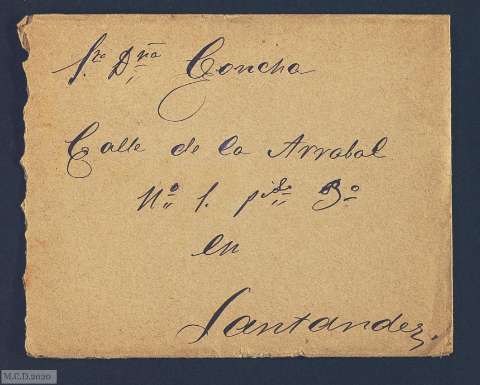 Sra Dña Concha
Calle de la Arrabal
Nº 1. piso 3º
en
Santander.
M.C.D. 2020